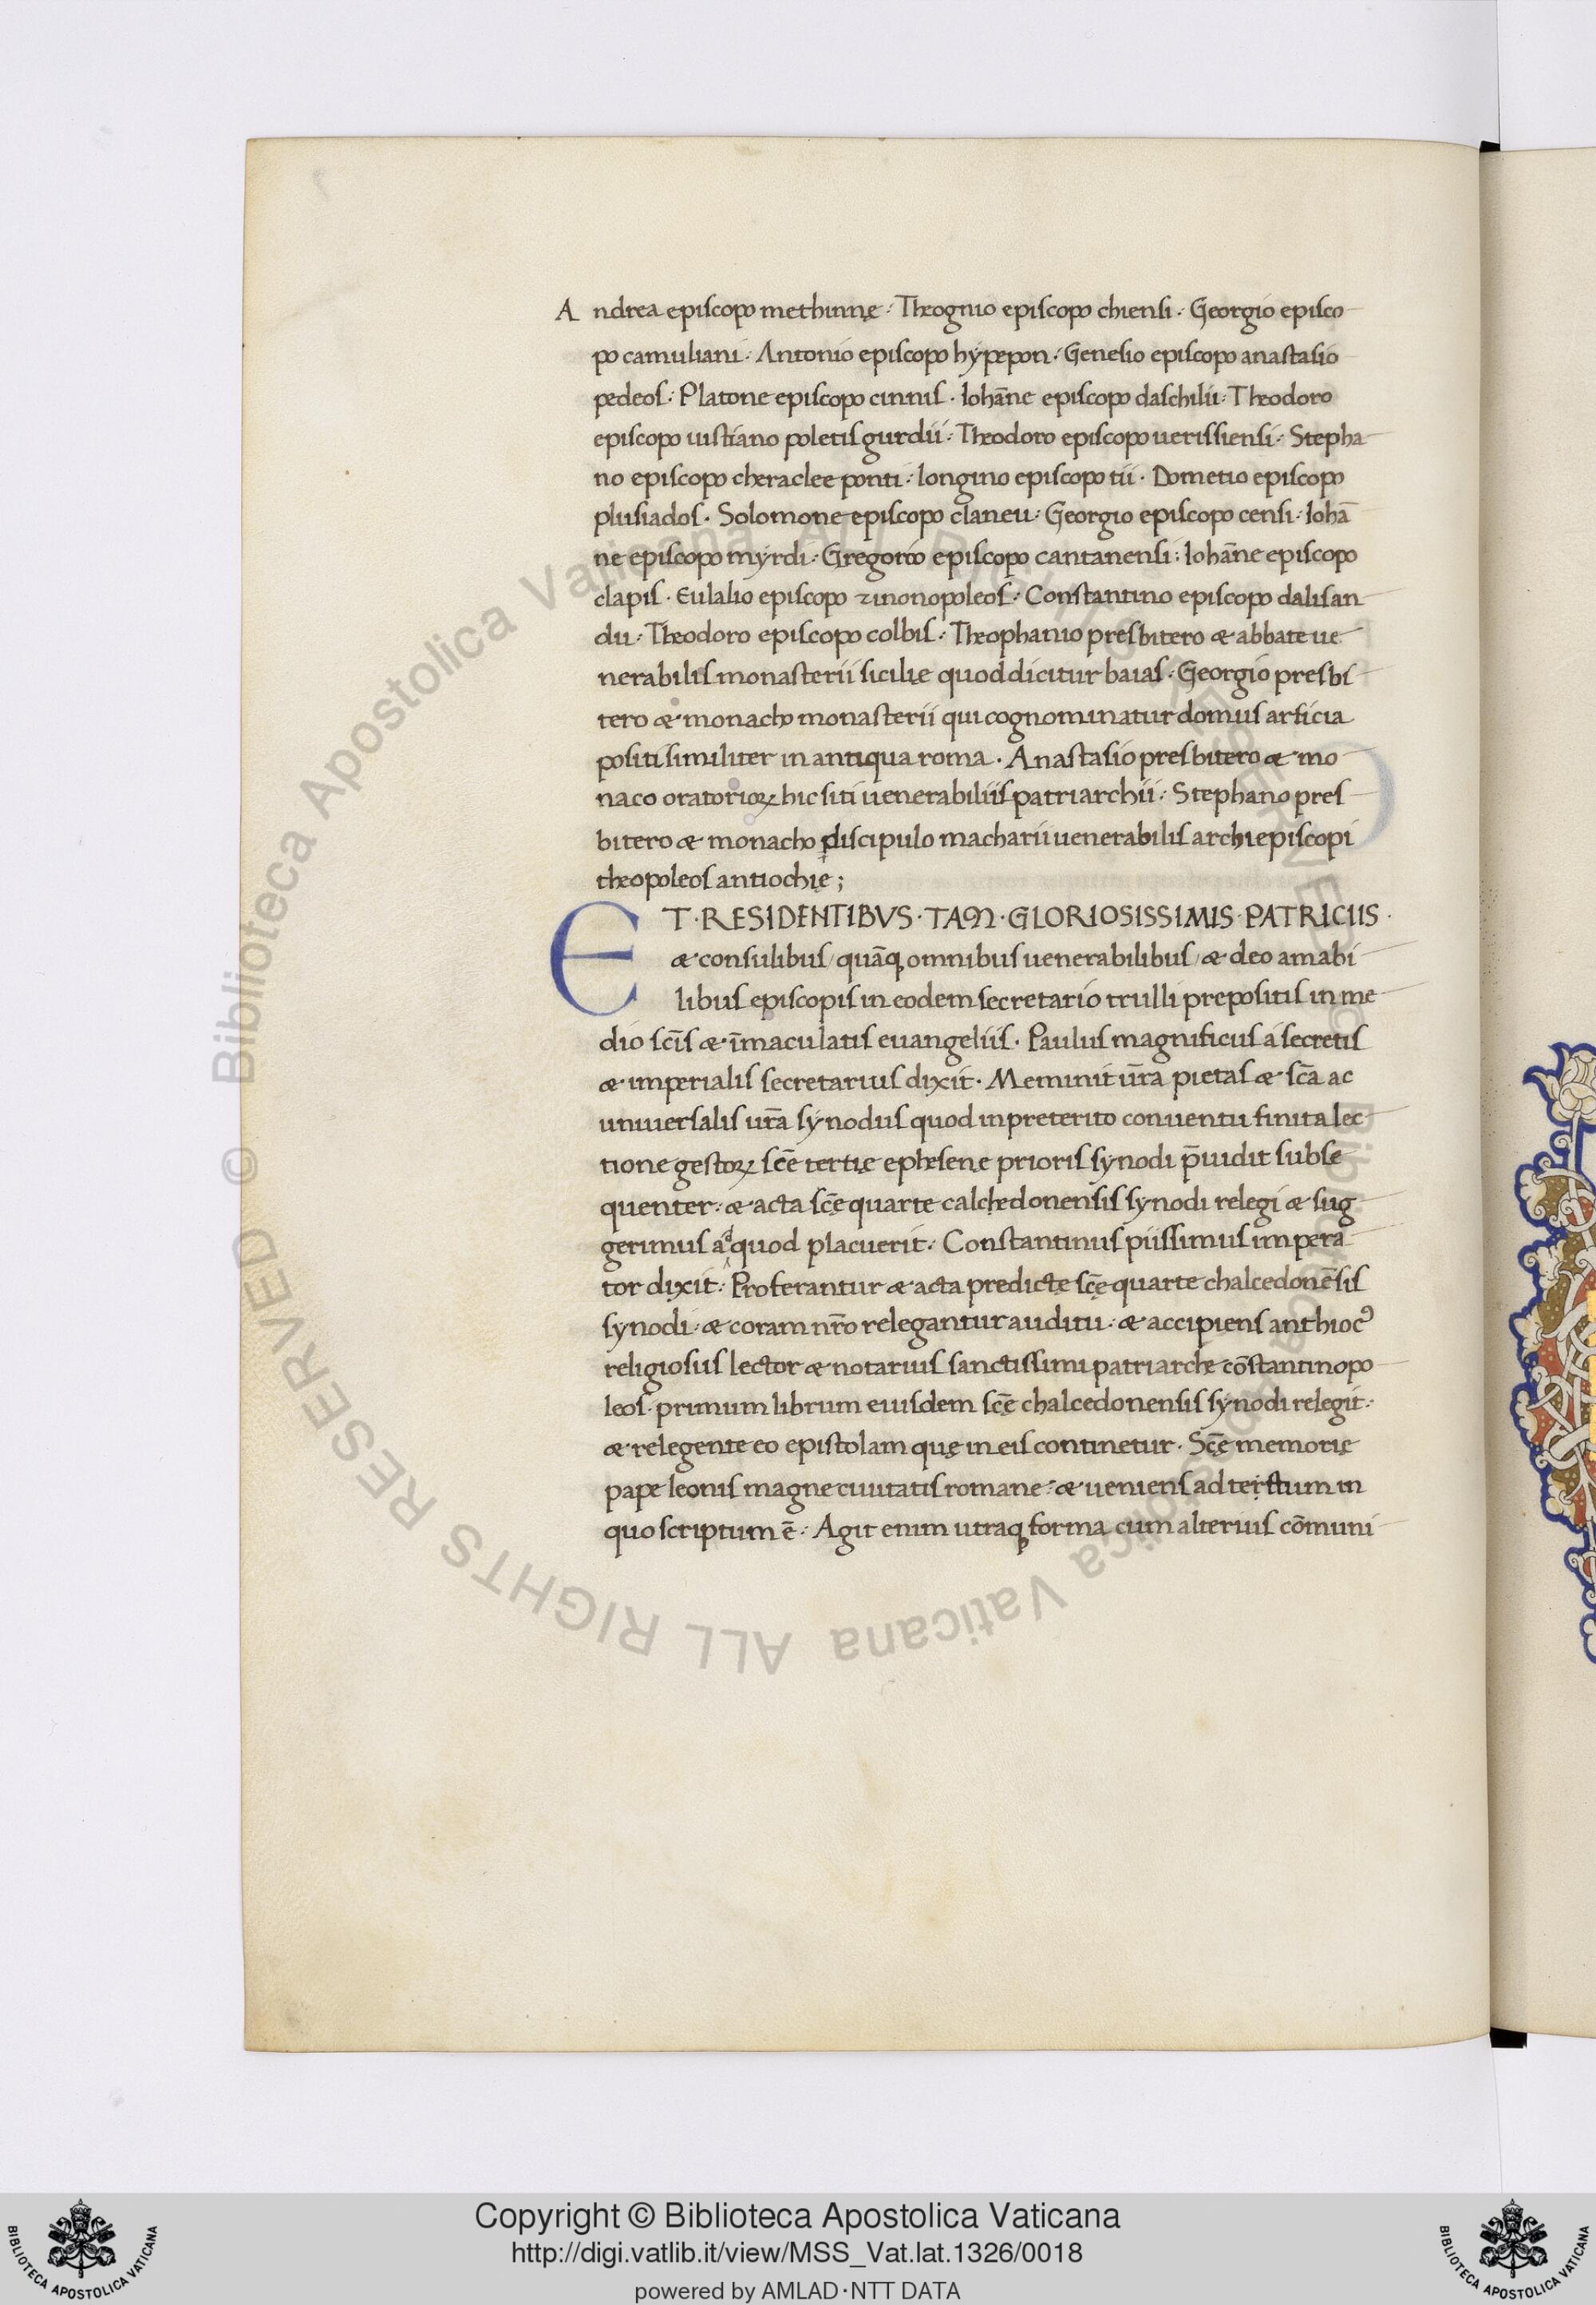 Andrea episcopo methinnę : Theognio episcopo chiensi : Georgio episco
po camuliani : Antonio episcopo hypepon : Genesio episcopo anastasio
pedeos : Platone episcopo cinnis . Iohāne episcopo daschilii : Theodoro
episcopo iustiano poletis gurdii : Theodoro episcopo uerissiensi : Stepha
no episcopo cheraclee ponti : longino episcopo tii . Dometio episcopo
plusiados . Solomone episcopo claneu : Georgio episcopo censi : Iohā
ne episcopo myrdi : Gregorio episcopo cantanensi : Iohāne episcopo
clapis . Eulalio episcopo zinonopoleos : Constantino episcopo dalisan
du : Theodoro episcopo colbis : Theophanio presbitero & abbate ue
nerabilis monasterii sicilię quod dicitur baias . Georgio presbi
tero & monacho monasterii qui cognominatur domus arsicia
positi similiter in antiqua roma . Anastasio presbitero & mo
naco oratorioꝝ hic siti uenerabiliis patriarchii : Stephano pres
bitero & monacho discipulo macharii uenerabilis archiepiscopi
theopoleos antiochię ;
ET · RESIDENTIBVS · TAM · GLORIOSISSIMIS · PATRICIIS ·
& consulibus / quāꝙ omnibus uenerabilibus / & deo amabi
libus episcopis in eodem secretario trulli prepositis in me
dio sc̄is & īmaculatis euangeliis . Paulus magnificus a secretis
& imperialis secretarius dixit . Meminit ūra pietas & sc̄a ac
uniuersalis ūra synodus quod in preterito conuentu finita lec
tione gestoꝝ sc̄e tertię ephesenę prioris synodi p̄uidit subse
quenter : & acta sc̄ę quarte calchedonensis synodi relegi & sug
gerimus ad quod placuerit : Constantinus piissimus impera
tor dixit : Proferantur & acta predictę sc̄ę quarte chalcedonēsis
synodi : & coram nr̄o relegantur auditu : & accipiens anthiocꝰ
religiosus lector & notarius sanctissimi patriarche cōstantinopo
leos . primum librum eiusdem sc̄ę chalcedonensis synodi relegit :
& relegente eo epistolam quę in eis continetur . Sc̄ę memorię
pape leonis magne ciuitatis romane : & ueniens ad in
quo scriptum ē : Agit enim utraqꝫ forma cum alterius cōmuni
© Biblioteca Apostolica Vaticana ALL RIGHTS RESERVED
© Biblioteca Apostolica Vaticana ALL RIGHTS RESERVED
Copyright © Biblioteca Apostolica Vaticana
http://digi.vatlib.it/view/MSS_Vat.lat.1326/0018
powered by AMLAD·NTT DATA
BIBLIOTECA APOSTOLICA VATICANA
BIBLIOTECA APOSTOLICA VATICANA